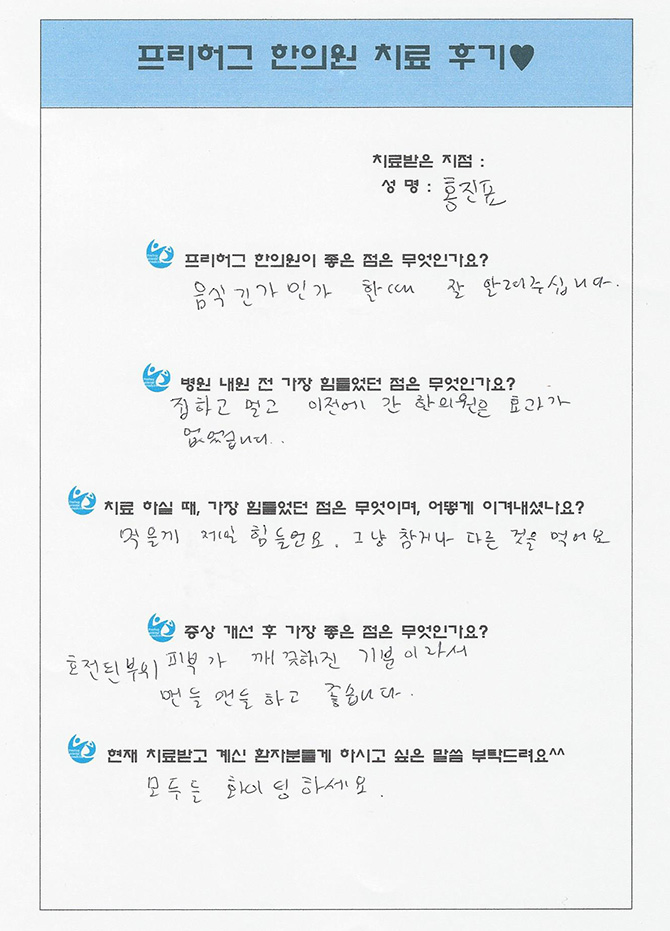 프리허그 한의원 치료 후기♥
치료받은 지점 :
성 명 : 홍진표
프리허그 한의원이 좋은 점은 무엇인가요?
음식 긴가 민가 할때 잘 알려주십니다.
병원 내원 전 가장 힘들었던 점은 무엇인가요?
집하고 멀고 이전에 간 한의원은 효과가
없었습니다..
치료 하실 때, 가장 힘들었던 점은 무엇이며, 어떻게 이겨내셨나요?
먹을께 제일 힘들언요. 그냥 참거나 다른 것을 먹어요
증상 개선 후 가장 좋은 점은 무엇인가요?
호전된부위 피부가 깨끗해진 기분이라서
맨들 맨들하고 좋습니다.
현재 치료받고 계신 환자분들게 하시고 싶은 말씀 부탁드려요^^
모두들 화이팅하세요.